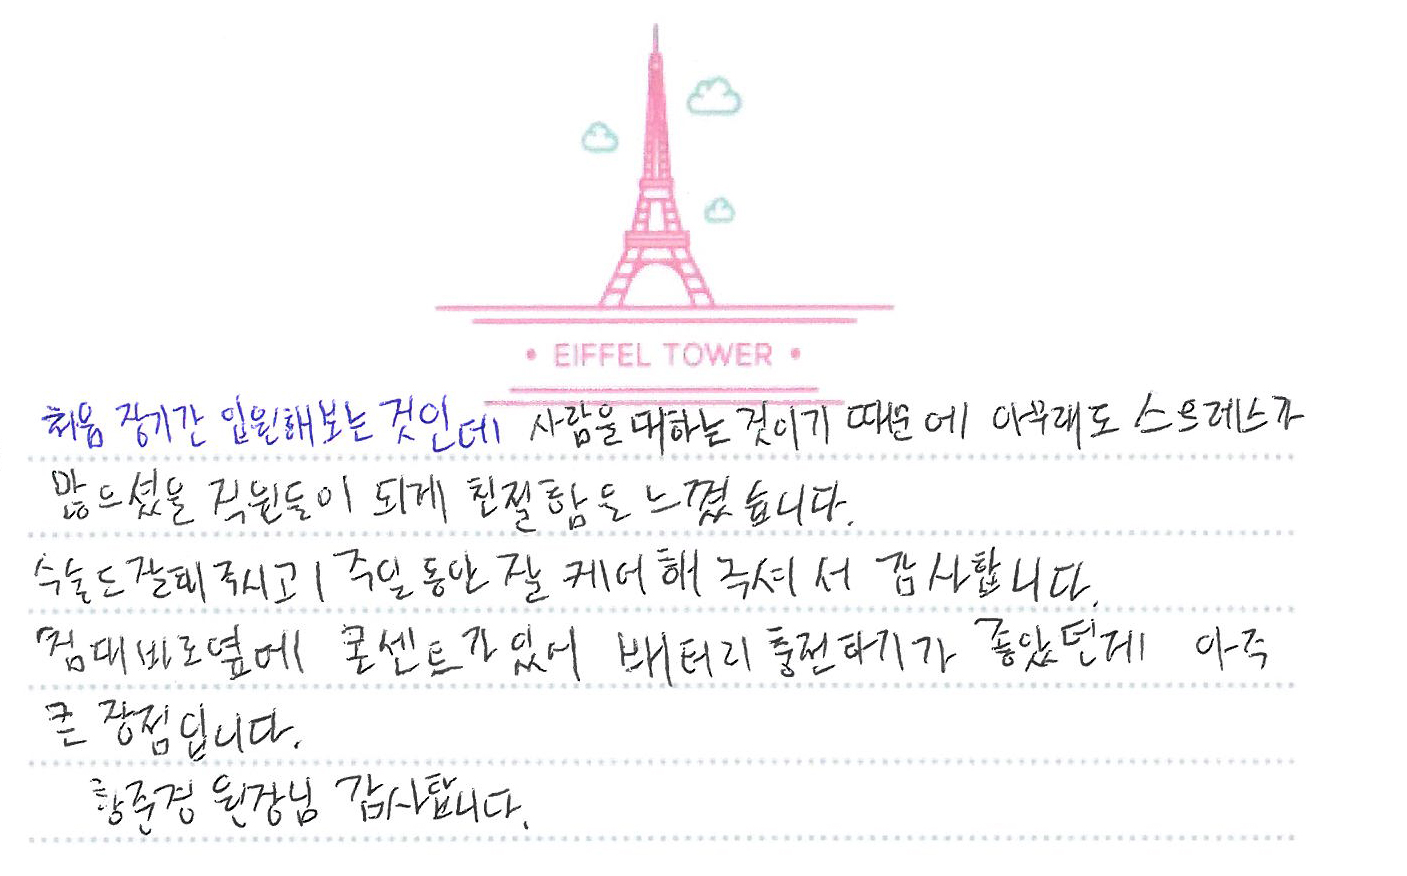 • EIFFEL TOWER •
처음 장기간 입원해보는 것인데 사람을 대하는 것이기 때문에 아무래도 스트레스가
많으셨을 직원들이 되게 친절함을 느꼈습니다.
수술도 잘해주시고 1주일동안 잘 케어해 주셔서 감사합니다.
침대 바로옆에 콘센트가 있어 배터리 충전하기가 좋았던게 아주
큰 장점입니다.
황준경 원장님 감사합니다.